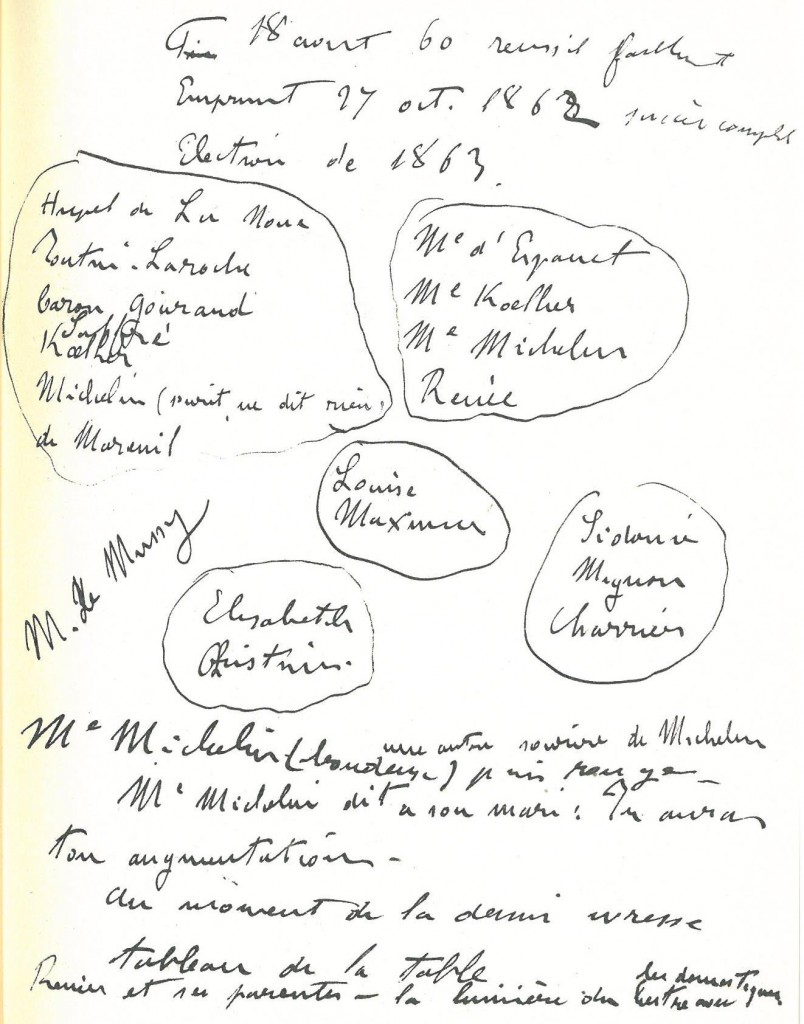 18 aout 60 reussit
Emprunt 27 oct. 1862 succès complet
Election de 1863.
Hupel de La Noue
Toutin-Laroche
baron Gouraud
Saffré
Kœlher
Michelin (sourit, ne dit rien)
de Mareuil
Me d'Espanet
Me Koelher
Me Michelin
Renée
Louise
Maxime
Sidonie
Mignon
Charrier
M. de Mussy
Elisabeth
Me Michelin (boudeuse) puis rouge
une autre sourire de Michelin
Me Michelin dit à son mari: Tu auras
ton augmentation -
Au moment de la demi ivresse
tableau de la table
et ses parentes - la lumière du lustre avec
les domestiques